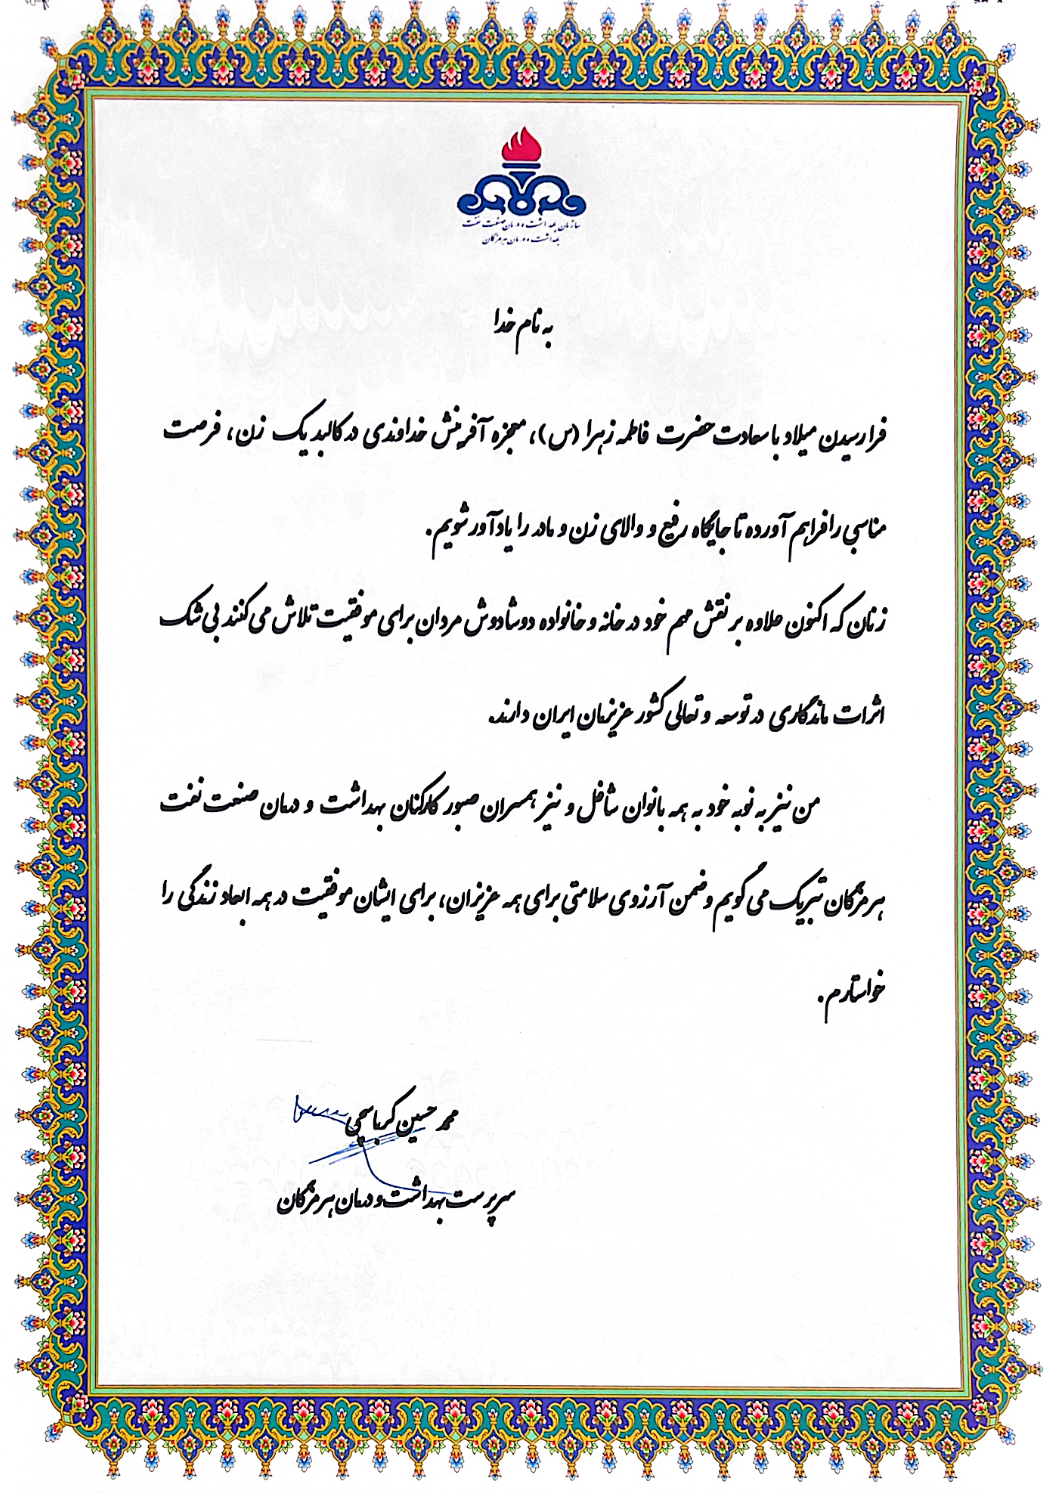 سازمان بهداشت و درمان صنعت نفت
بهداشت و درمان هرمزگان
به نام خدا
فرا رسیدن میلاد با سعادت حضرت فاطمه زهرا (س)، معجزه آفرینش خداوندی در کالبد یک زن، فرصت
مناسبی را فراهم آورده تا جایگاه رفیع و والای زن و مادر را یادآور شویم.
زنان که اکنون علاوه بر نقش مهم خود در خانه و خانواده دوشادوش مردان برای موفقیت تلاش می کنند بی شک
اثرات ماندگاری در توسعه و تعالی کشور عزیزمان ایران دارند.
من نیز به نوبه خود به همه بانوان شاغل و نیز همسران صبور کارکنان بهداشت و درمان صنعت نفت
هرمزگان تبریک می گویم و ضمن آرزوی سلامتی برای همه عزیزان، برای ایشان موفقیت در همه ابعاد زندگی را
خواستارم.
محمد حسین کرباسچی
سرپرست بهداشت و درمان هرمزگان